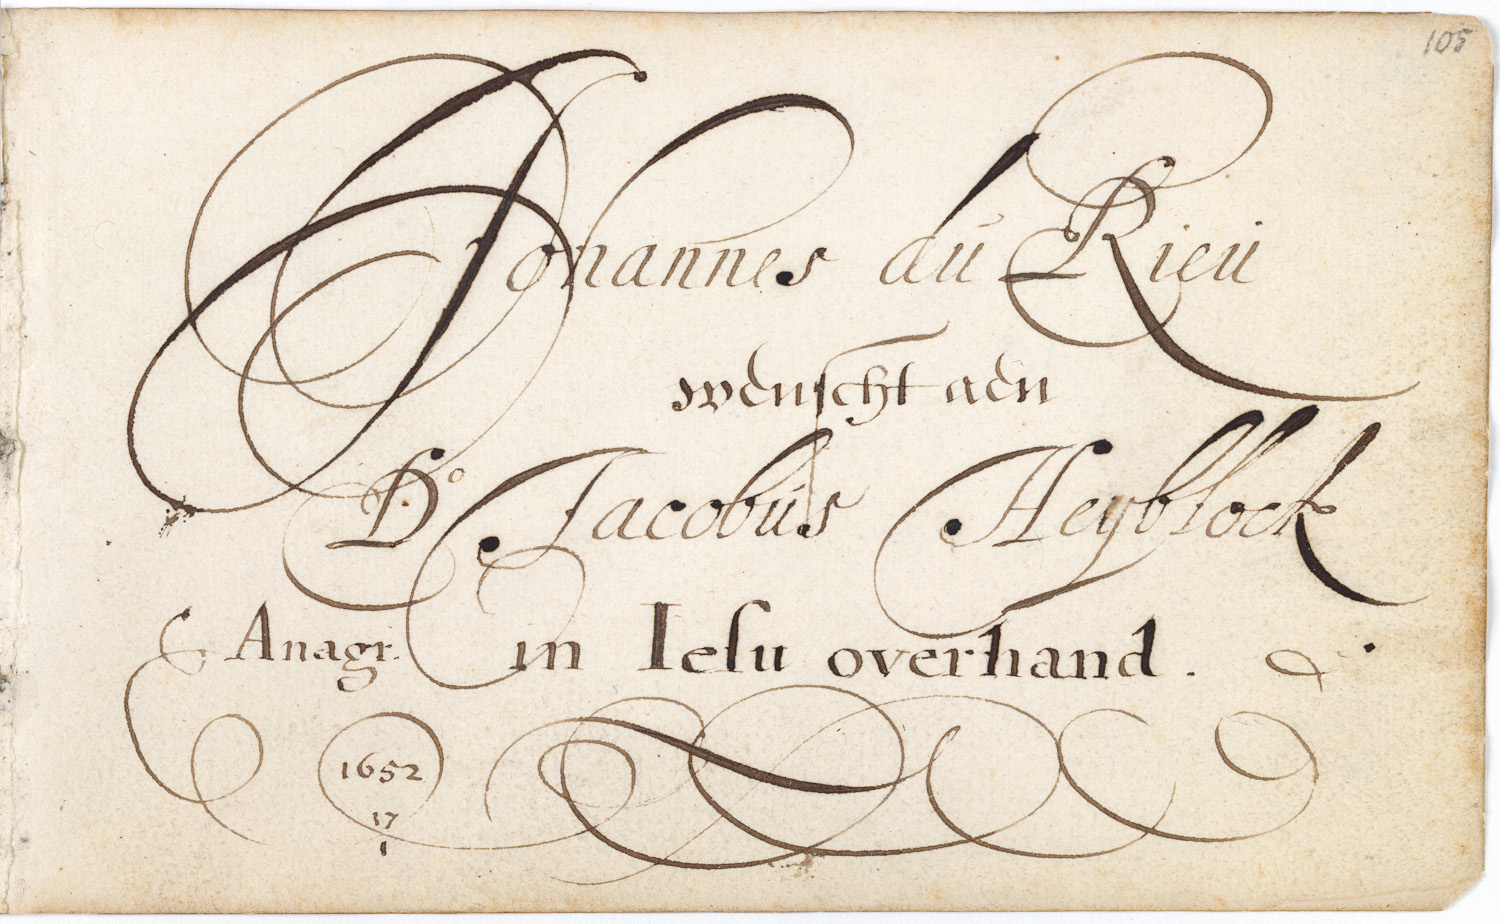 105
Johannes du Rieu
wenscht aen
D.º Jacobus Heyblock
Anagr. in Iesu overhand.
1652
17
1